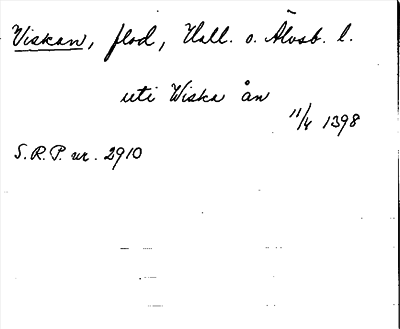 Viskan, flod, Hall. o. Älvsb. l.
uti Wiska ån
11/4 1398
S.R.P. nr. 2910